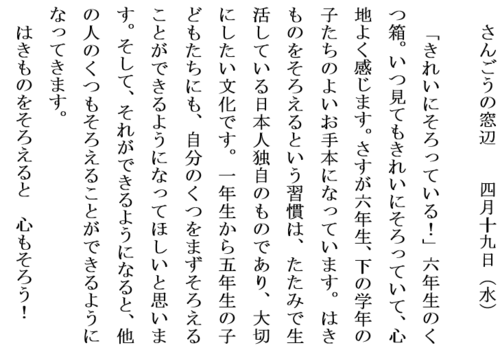 さんごうの窓辺　　四月十九日（水）
「きれいにそろっている！」六年生のく
つ箱。いつ見てもきれいにそろっていて、心
地よく感じます。さすが六年生、下の学年の
子たちのよいお手本になっています。はき
ものをそろえるという習慣は、たたみで生
活している日本人独自のものであり、大切
にしたい文化です。一年生から五年生の子
どもたちにも、自分のくつをまずそろえる
ことができるようになってほしいと思いま
す。そして、それができるようになると、他
の人のくつもそろえることができるように
なってきます。
はきものをそろえると　心もそろう！